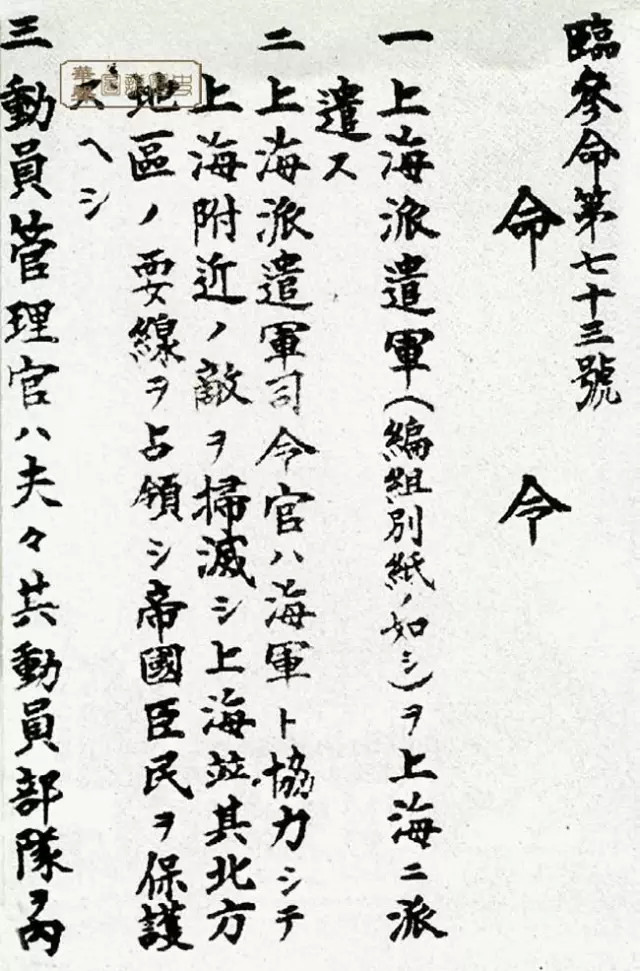 臨參命第七十三號
命令
一 上海派遣軍(編組別紙ノ如シ)ヲ上海ニ派
遣ス
二 上海派遣軍司令官ハ海軍ト協力シテ
上海附近ノ敵ヲ掃滅シ上海並其北方
地區ノ要線ヲ占領シ帝國臣民ヲ保護
スヘシ
三 動員管理官ハ夫々其動員部隊ヲ内